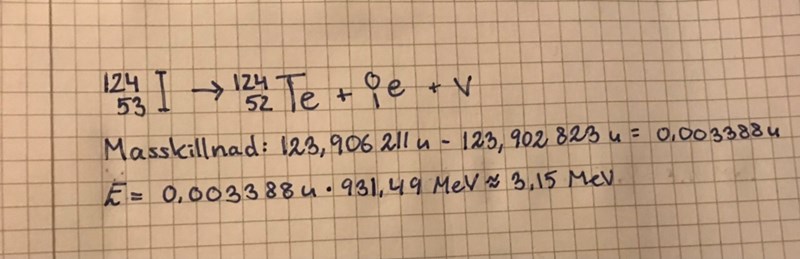 ¹²⁴₅₃I → ¹²⁴₅₂Te + ⁰₁e + ν
Masskillnad: 123,906 211 u - 123,902 823 u = 0,003388u
E = 0,003388u · 931,49 MeV ≈ 3,15 MeV